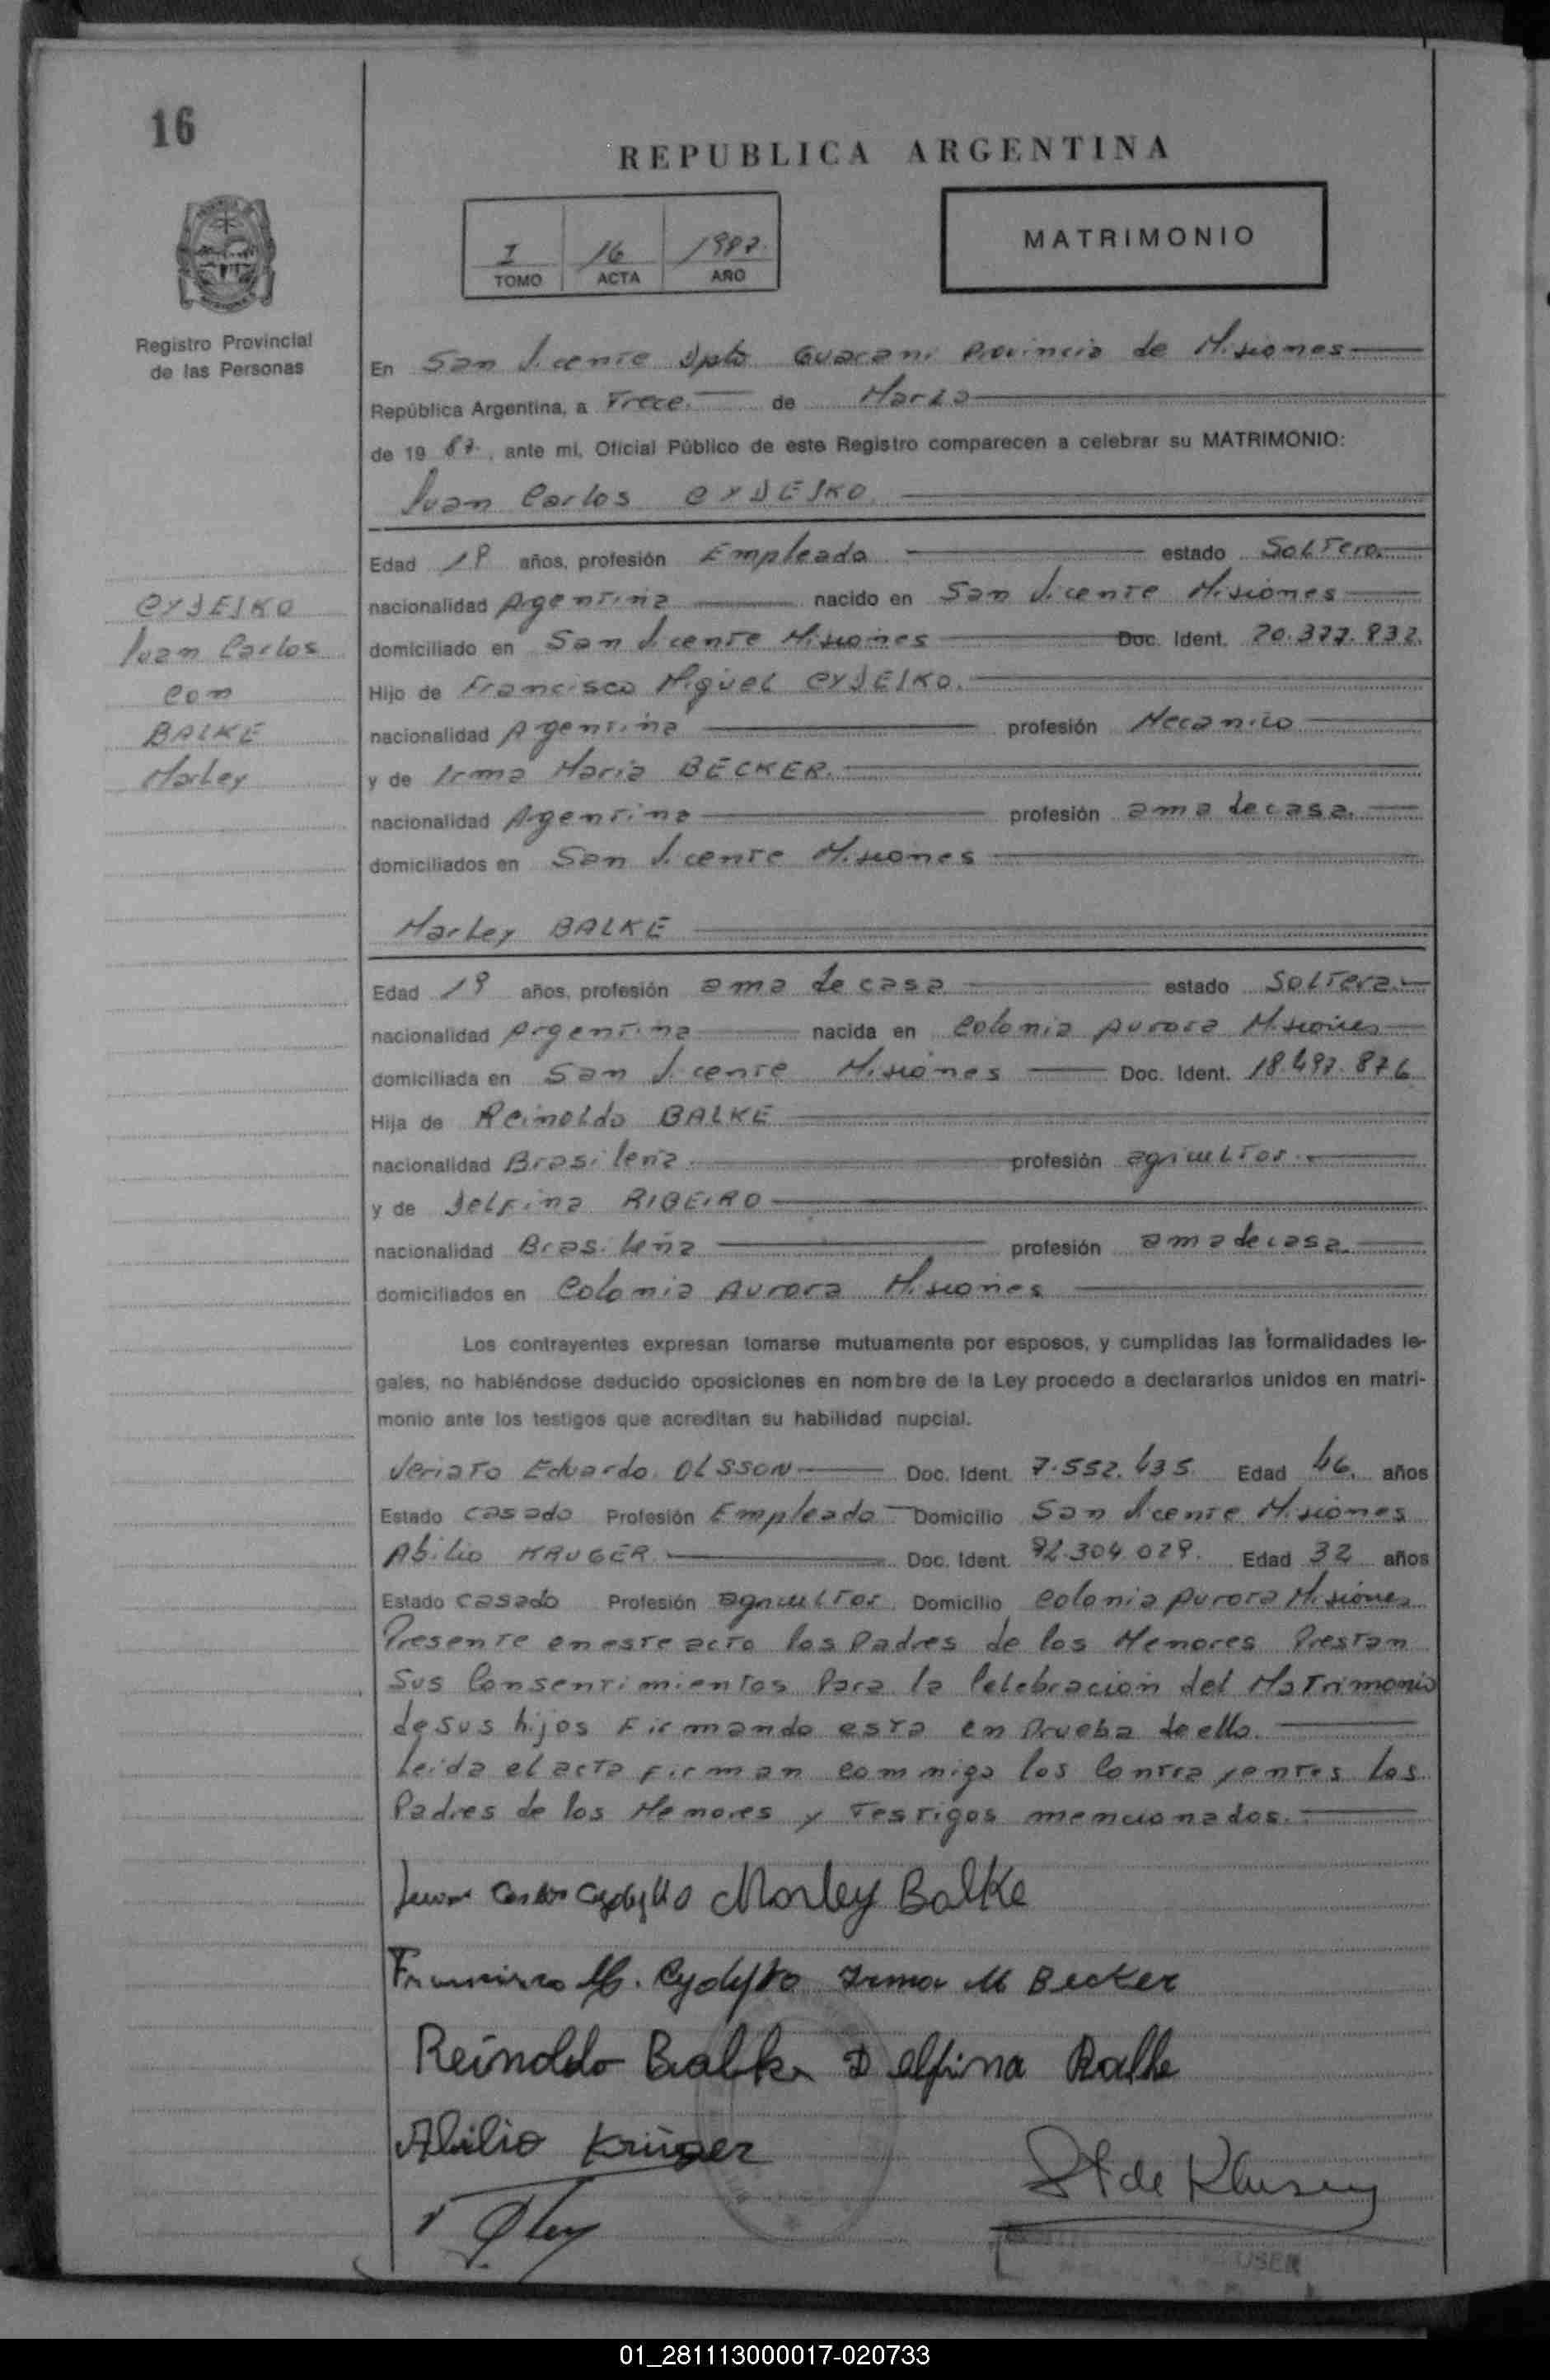 16
REPUBLICA ARGENTINA
I 16 1987.
TOMO ACTA AÑO
MATRIMONIO
Registro Provincial
de las Personas
En San Vicente Dpto Guarani Provincia de Misiones
República Argentina, a Trece. de Marzo
de 19 87., ante mi, Oficial Público de este Registro comparecen a celebrar su MATRIMONIO:
Juan Carlos CYDEJKO.
Edad 18 años, profesión Empleado estado Soltero.
nacionalidad Argentina nacido en San Vicente Misiones
domiciliado en San Vicente Misiones Doc. Ident. 20.377.832.
Hijo de Francisco Miguel CYDEJKO.
nacionalidad Argentina profesión Mecanico
y de Irma Maria BECKER.
nacionalidad Argentina profesión ama de casa.
domiciliados en San Vicente Misiones
CYDEJKO
Juan Carlos
con
BALKE
Marley
Marley BALKE
Edad 19 años, profesión ama de casa estado Soltera.
nacionalidad Argentina nacida en Colonia Aurora Misiones
domiciliada en San Vicente Misiones Doc. Ident. 18.497.876
Hija de Reinoldo BALKE
nacionalidad Brasileña profesión agricultor.
y de Delfina RIBEIRO
nacionalidad Brasileña profesión ama de casa.
domiciliados en Colonia Aurora Misiones
Los contrayentes expresan tomarse mutuamente por esposos, y cumplidas las formalidades le-
gales, no habiéndose deducido oposiciones en nombre de la Ley procedo a declararlos unidos en matri-
monio ante los testigos que acreditan su habilidad nupcial.
Veriato Eduardo OLSSON Doc. Ident. 7.552.435. Edad 46. años
Estado casado Profesión Empleado Domicilio San Vicente Misiones
Abilio KRUGER Doc. Ident. 92.304.029. Edad 32 años
Estado casado Profesión agricultor Domicilio Colonia Aurora Misiones
Presente en este acto los Padres de los Menores Prestan
Sus Consentimientos Para la Celebración del Matrimonio
de sus hijos Firmando esta en Prueba de ello.
Leida el acta firman conmigo los Contrayentes los
Padres de los Menores y Testigos mencionados.
Juan Carlos Cydejko Marley Balke
Francisco M. Cydejko Irma M Becker
Reinoldo Balke Delfina Balke
Abilio Krüger
01_281113000017-020733